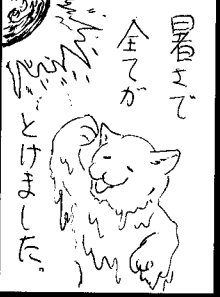 暑さで
全てが
とけました。